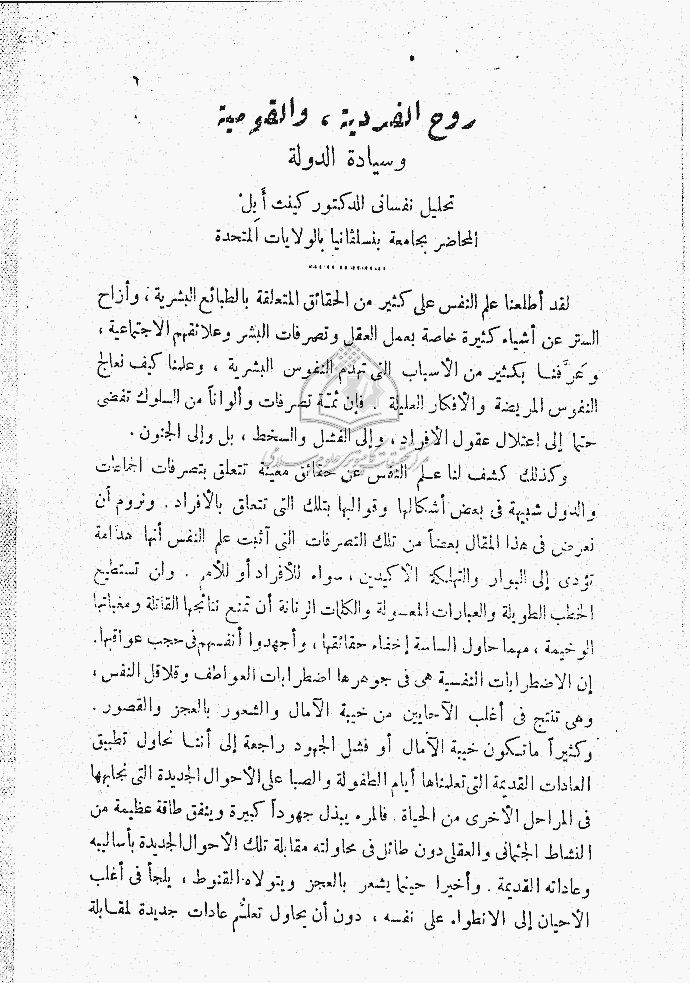 ٦
روح الفردية ، والقومية
وسيادة الدولة
تحليل نفسانى للدكتور كينث أَبِلْ
المحاضر بجامعة بنسلڤانيا بالولايات المتحدة
لقد أطلعنا علم النفس على كثير من الحقائق المتعلقة بالطبائع البشرية ، وأزاح
الستر عن أشياء كثيرة خاصة بعمل العقل وتصرفات البشر وعلائقهم الاجتماعية ،
وعرَّفنا بكثير من الأسباب التى تهدم النفوس البشرية ، وعلمنا كيف نعالج
النفوس المريضة والأفكار العليلة . فإن ثمّة تصرفات وألواناً من السلوك تفضى
حتما إلى اعتلال عقول الأفراد ، وإلى الفشل والسخط ، بل وإلى الجنون .
وكذلك كشف لنا علم النفس عن حقائق معينة تتعلق بتصرفات الجماعات
والدول شبيهة فى بعض أشكالها وقوالبها بتلك التى تتعلق بالأفراد . ونروم أن
نعرض فى هذا المقال بعضاً من تلك التصرفات التى أثبت علم النفس أنها هدامة
تؤدى إلى البوار والتهلكة الأكيدين ، سواء للأفراد أو للأمم . ولن تستطيع
الخطب الطويلة والعبارات المعسولة والكلمات الرنانة أن تمنع نتائجها القاتلة ومغباتها
الوخيمة ، مهما حاول الساسة إخفاء حقائقها ، وأجهدوا أنفسهم فى حجب عواقبها.
إن الاضطرابات النفسية هى فى جوهرها اضطرابات العواطف وقلاقل النفس ،
وهى تنتج فى أغلب الأحايين من خيبة الآمال والشعور بالعجز والقصور .
وكثيراً ما تكون خيبة الآمال أو فشل الجهود راجعة إلى أننا نحاول تطبيق
العادات القديمة التى تعلمناها أيام الطفولة والصبا على الأحوال الجديدة التى نجابهها
فى المراحل الأخرى من الحياة . فالمرء يبذل جهوداً كبيرة وينفق طاقة عظيمة من
النشاط الجثمانى والعقلى دون طائل فى محاولته مقابلة تلك الأحوال الجديدة بأساليبه
وعاداته القديمة . وأخيرا حينما يشعر بالعجز ويتولاه القنوط ، يلجأ فى أغلب
الأحيان إلى الانطواء على نفسه ، دون أن يحاول تعلُّم عادات جديدة لمقابلة